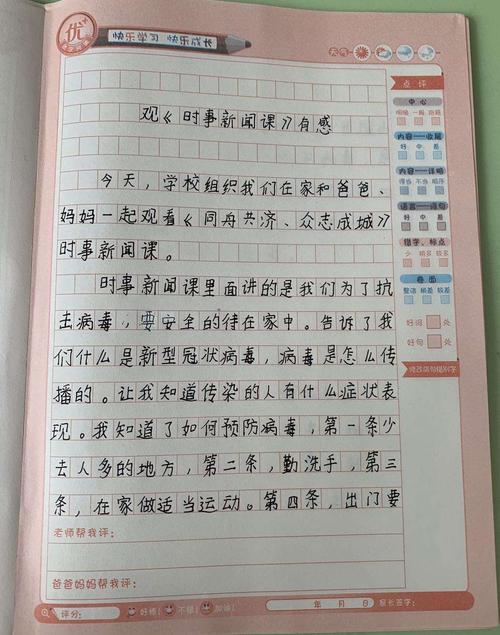 优+
快乐学习 快乐成长
天气
观《时事新闻课》有感
今天，学校组织我们在家和爸爸、
妈妈一起观看《同舟共济、众志成城》
时事新闻课。
时事新闻课里面讲的是我们为了抗
击病毒，要安全的待在家中。告诉了我
们什么是新型冠状病毒，病毒是怎么传
播的。让我知道传染的人有什么症状表
现。我知道了如何预防病毒，第一条少
去人多的地方，第二条，勤洗手，第三
条，在家做适当运动。第四条，出门要
老师帮我评：
爸爸妈妈帮我评：
评分： 好棒！ 不错！ 加油！ 年 月 日 家长签字：
点评
中心
明确 一般 跑题
内容——收尾
好 中 差
内容——详略
得当 不当 顺序
语言——语句
好 中 差
错字、标点
少 稍多 较多
卷面
整洁 稍差 较差
好词 处
好句 处
修改病句错别字